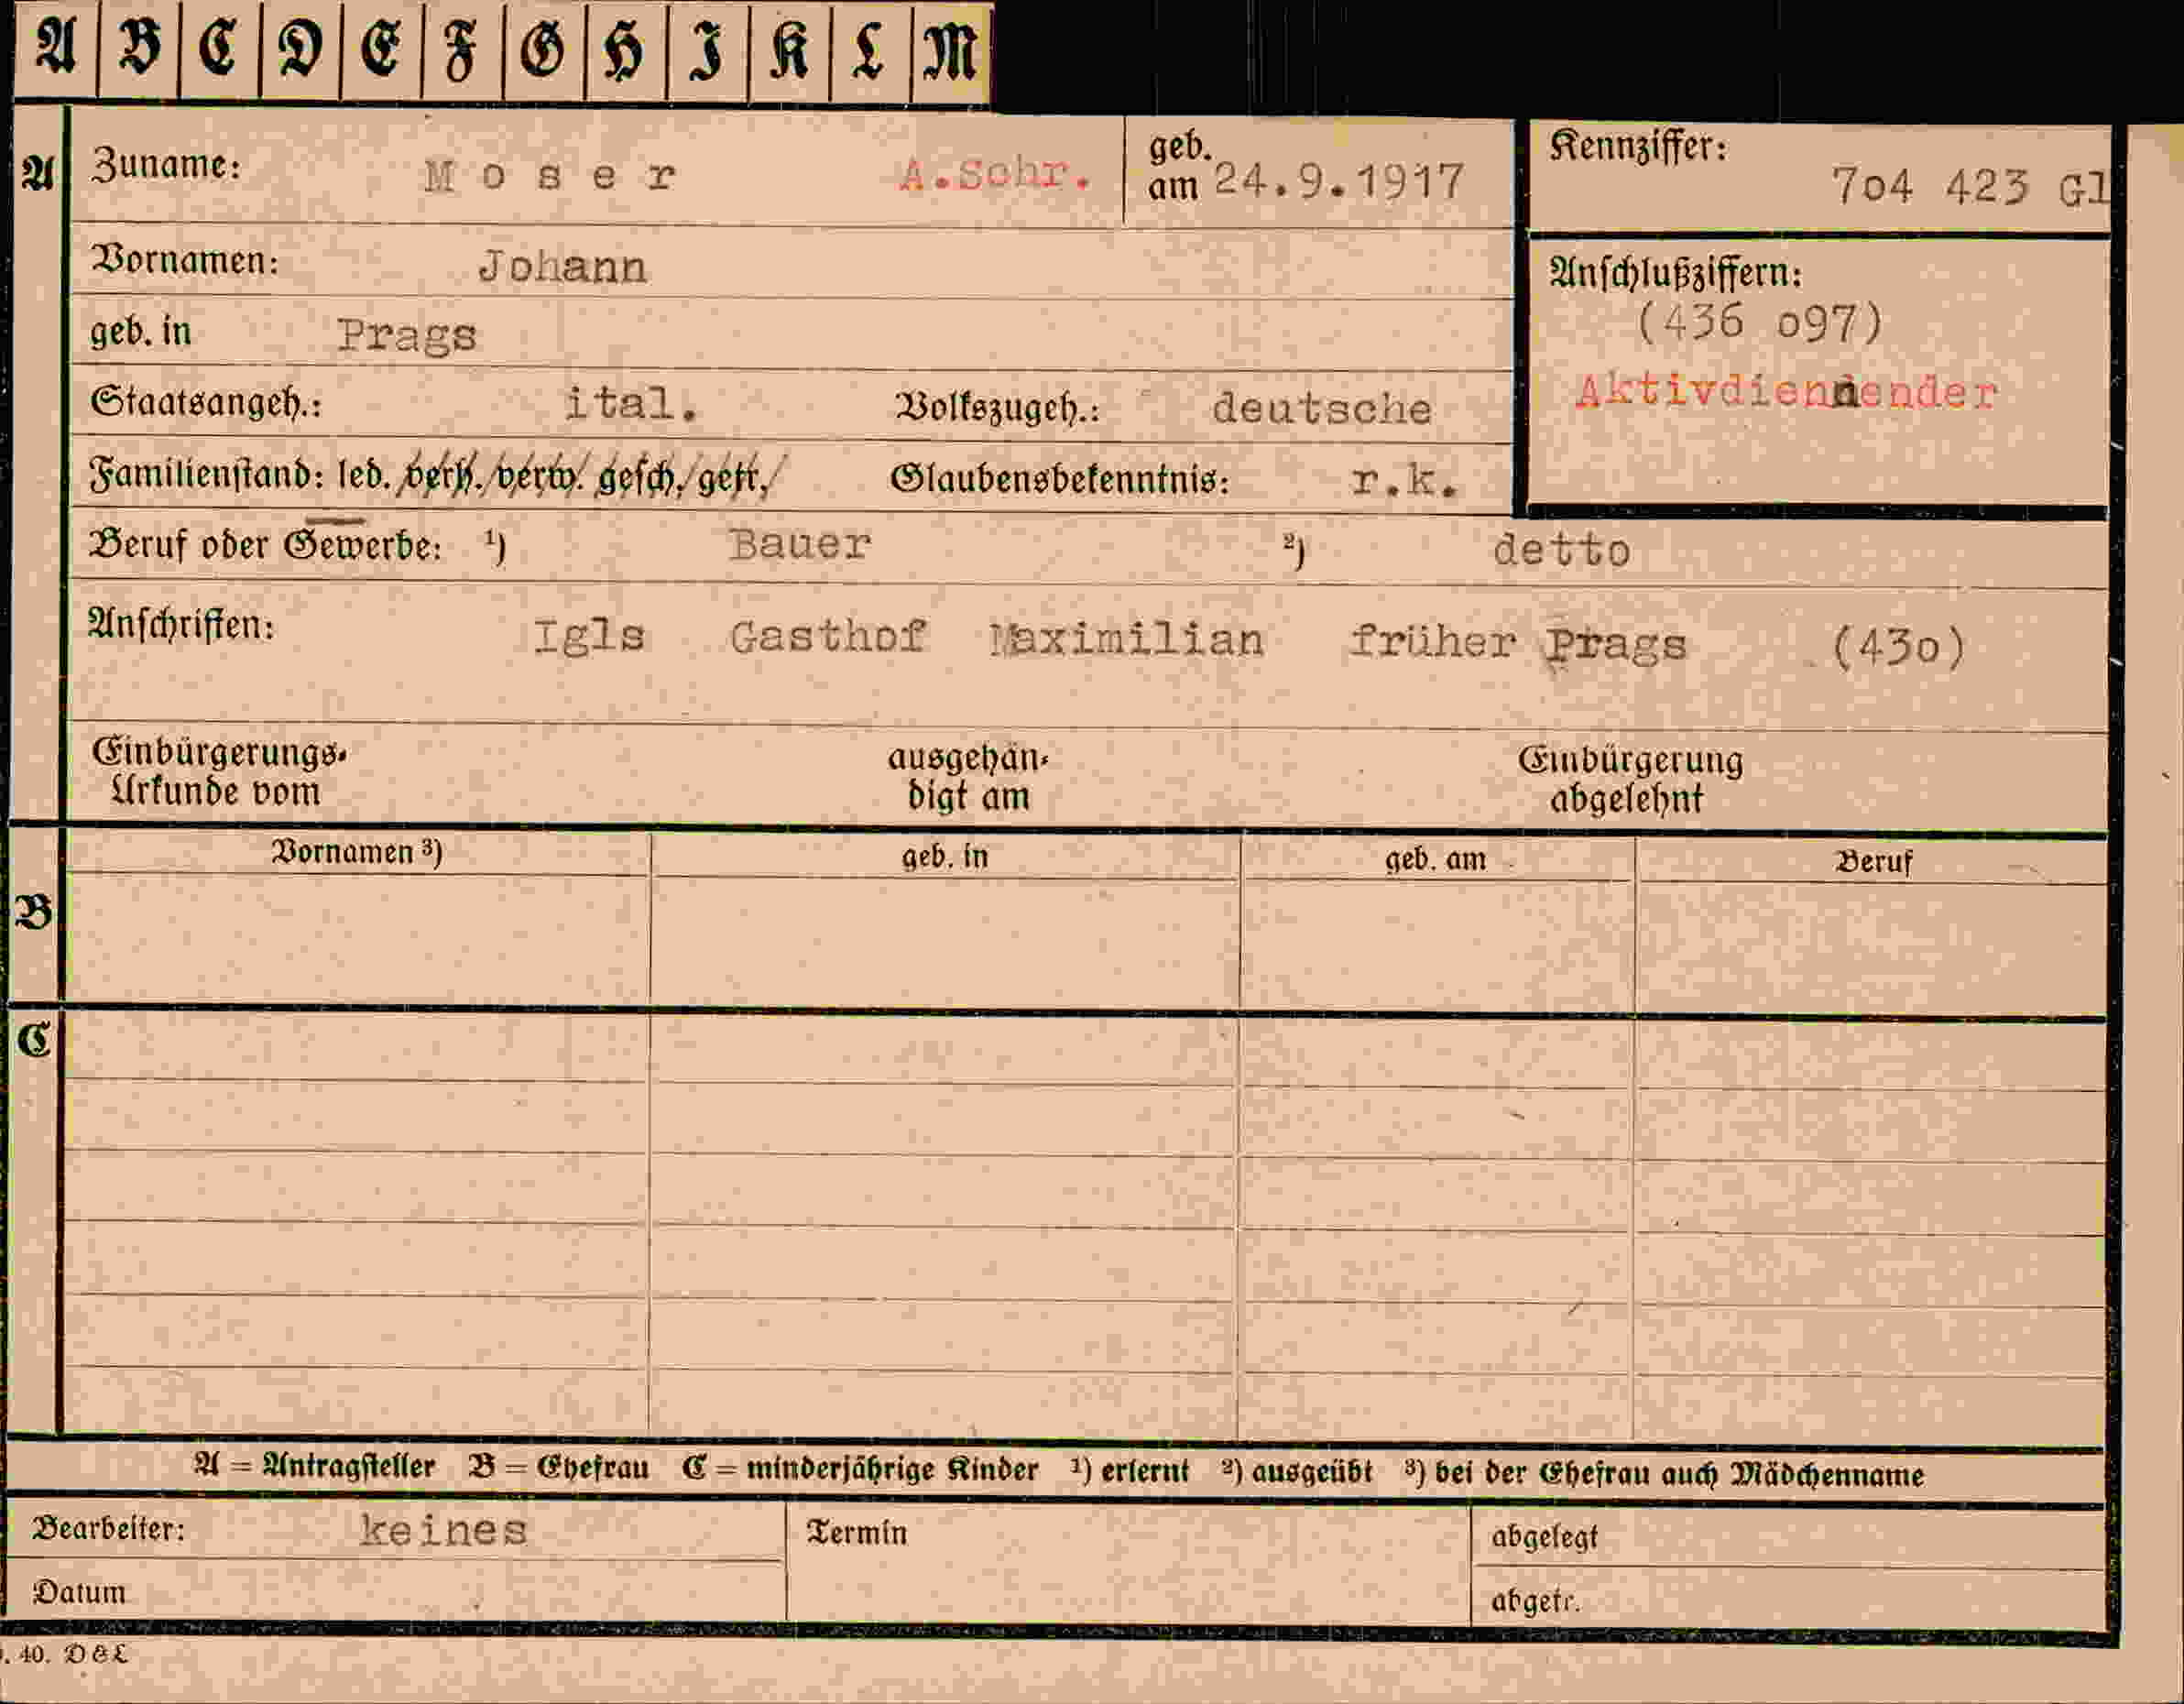 A B C D E F G H I K L M
A Zuname: Moser A.Schr. geb. am 24.9.1917 Kennziffer: 7o4 423 Gl
Vornamen: Johann
geb. in Prags
Anschlußziffern:
(436 o97)
Aktivdiennender
Staatsangeh.: ital. Volkszugeh.: deutsche
Familienstand: led. verh. verw. gesch. getr. Glaubensbekenntnis: r.k.
Beruf oder Gewerbe: ¹) Bauer ²) detto
Anschriften: Igls Gasthof Maximilian früher Prags (43o)
Einbürgerungs-Urkunde vom ausgehändigt am Einbürgerung abgelehnt
Vornamen ³) geb. in geb. am Beruf
B
C
A = Antragsteller B = Ehefrau C = minderjährige Kinder ¹) erlernt ²) ausgeübt ³) bei der Ehefrau auch Mädchenname
Bearbeiter: keines Termin abgelegt
Datum abgetr.
. 40. D&L